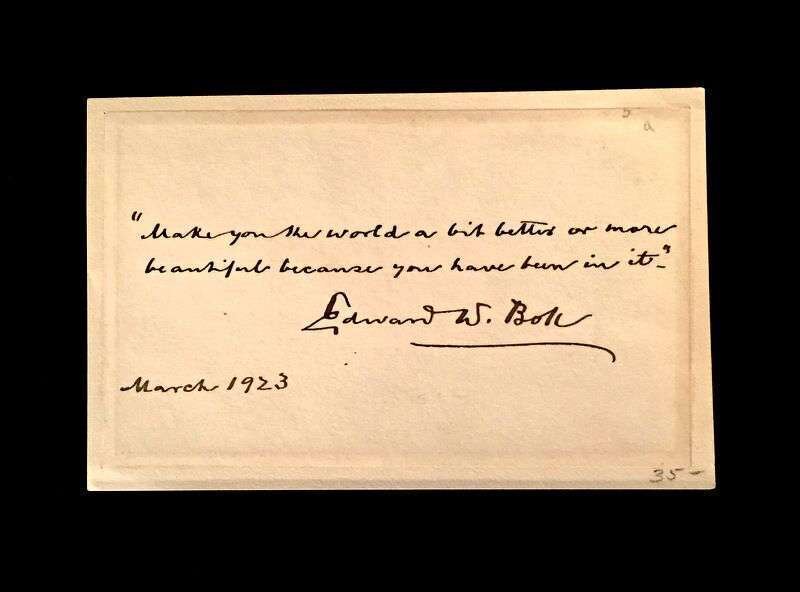 "Make you the world a bit better or more
beautiful because you have been in it."
Edward W. Bok
March 1923
35-